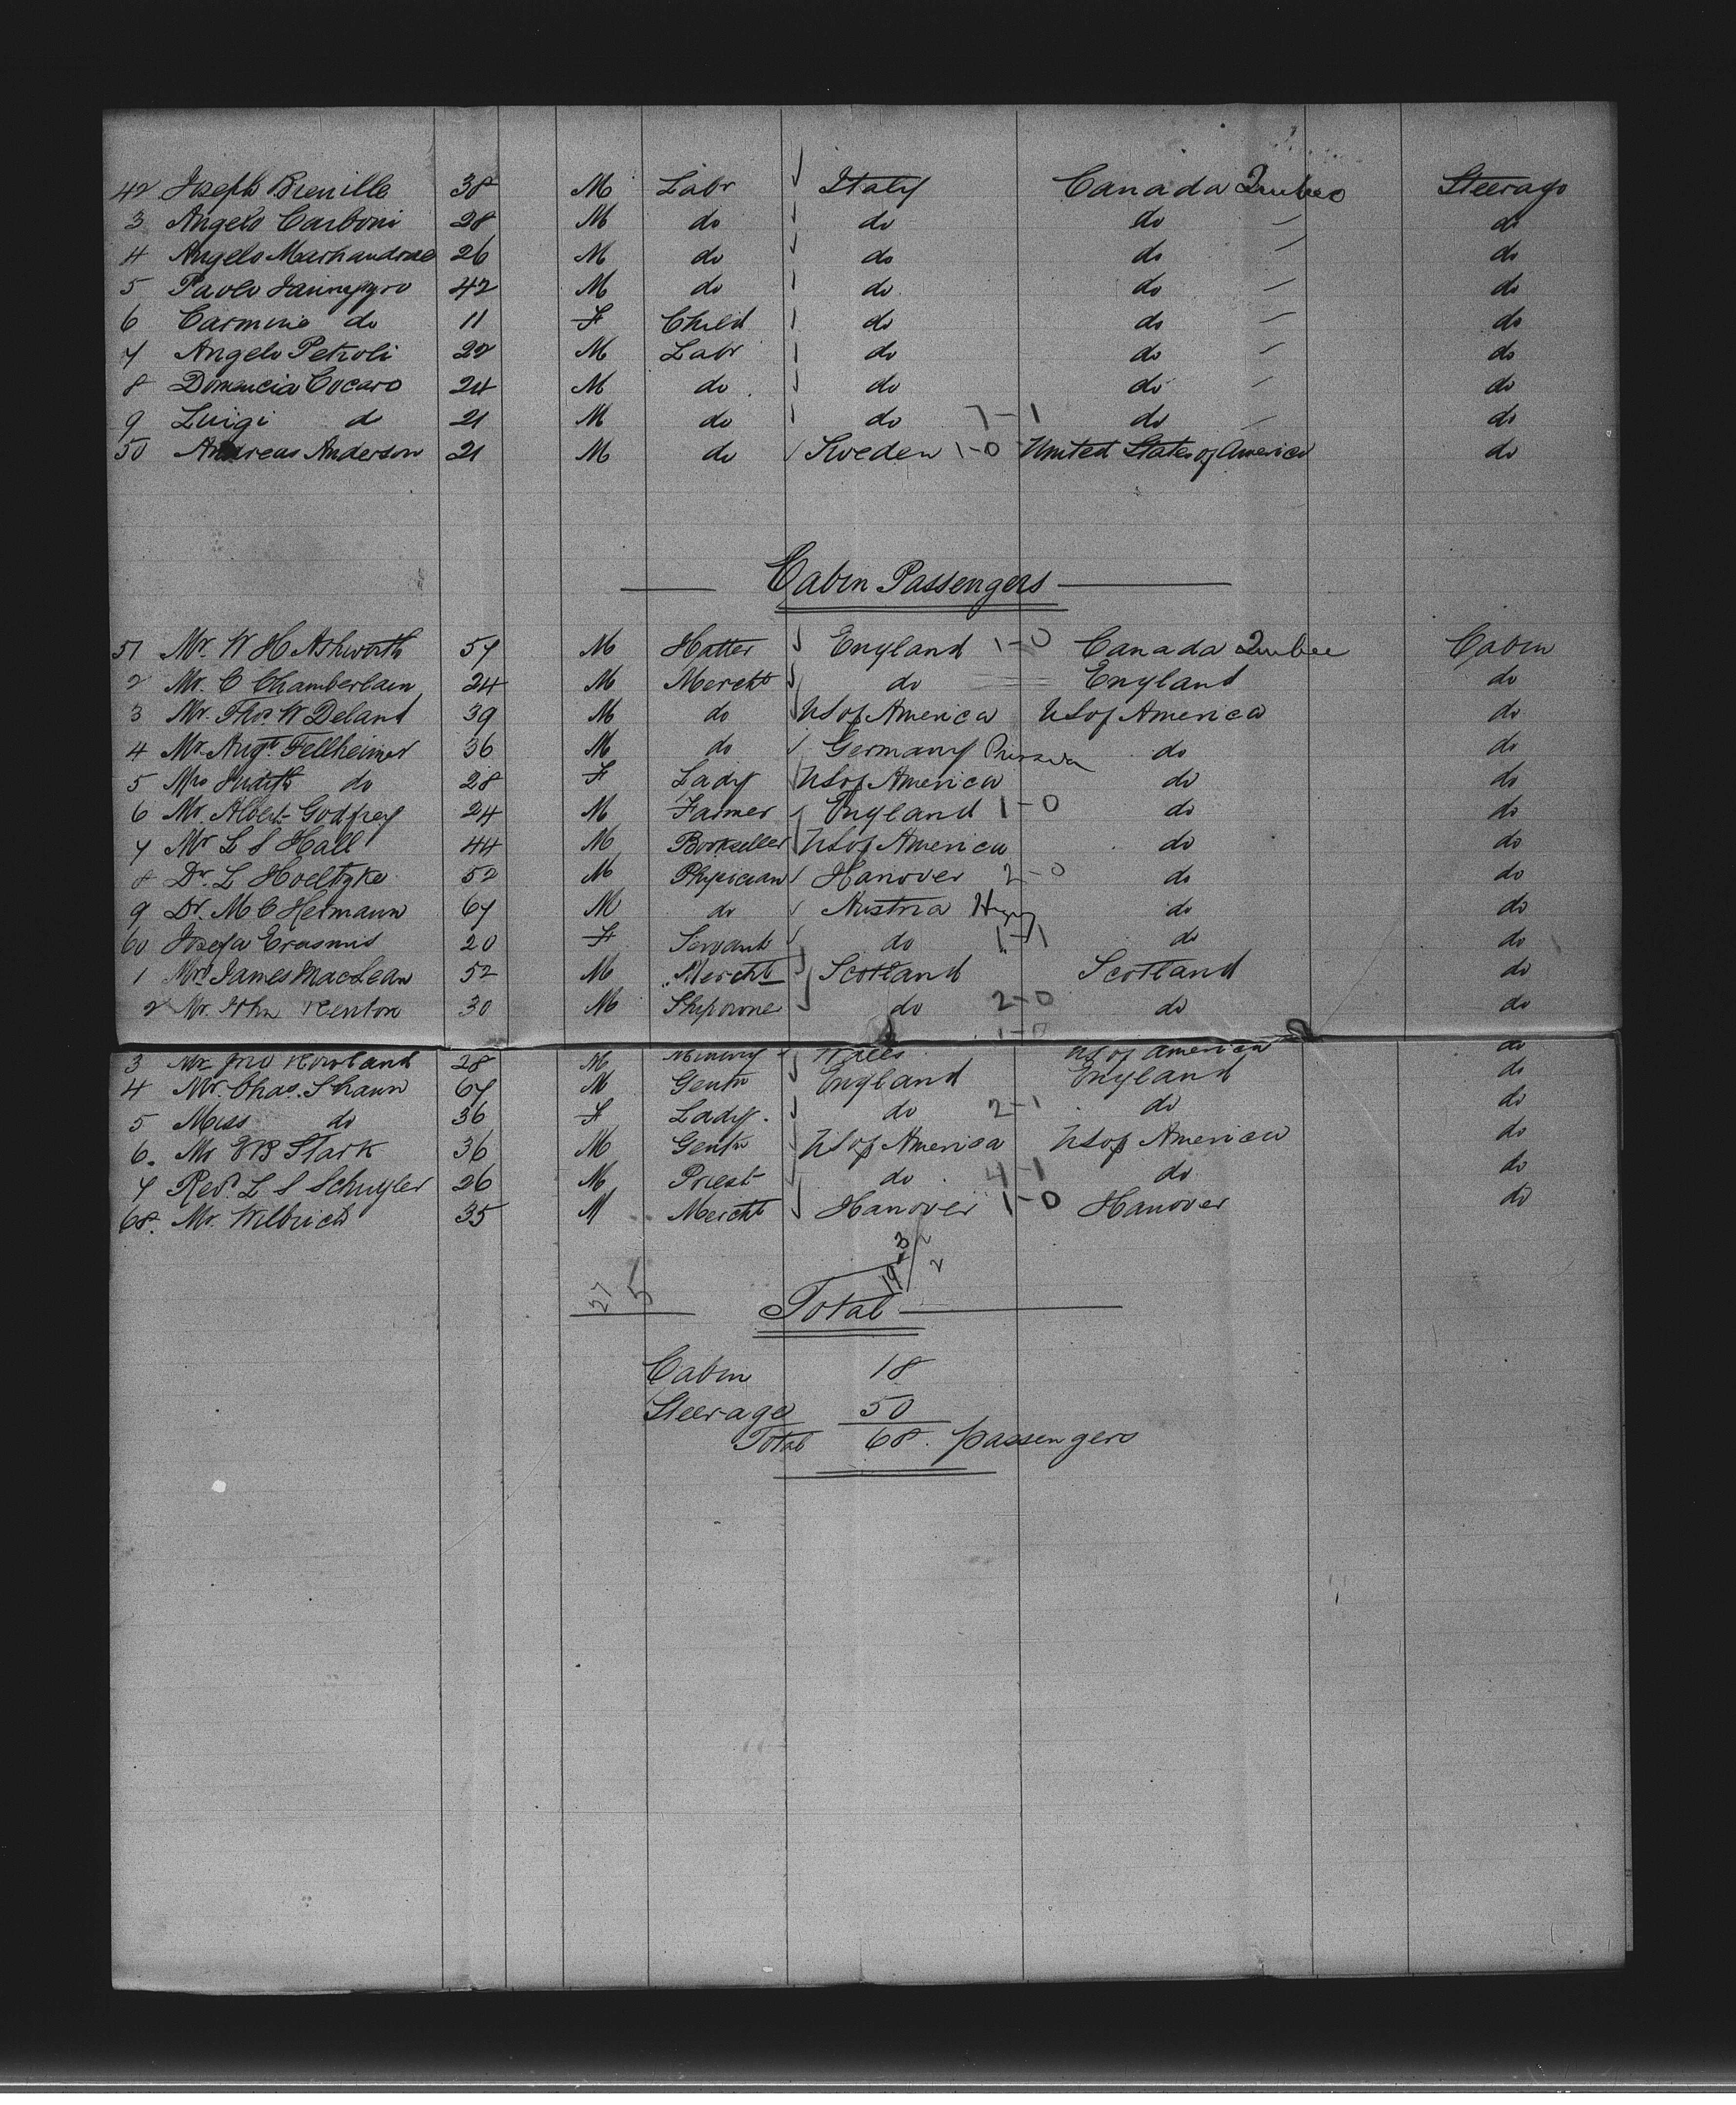 42 Joseph Breville 38 M Labr Italy Canada Quebec Steerage
3 Angelo Carboni 28 M do do do do
4 Angelo 26 M do do do do
5 Paolo 42 M do do do do
6 Carmine do 11 F Child do do do
7 Angelo Petroli 22 M Labr do do do
8 Domencia Cocaro 24 M do do do do
9 Luigi do 21 M do do 7-1 do do
50 Andreas Anderson 21 M do Sweden 1-0 United States of America do
Cabin Passengers
51 Mr. W H Ashworth 57 M Hatter England 1-0 Canada Quebec Cabin
2 Mr. C Chamberlain 24 M Mercht do England do
3 Mr. Thos. W Deland 39 M do US of America US of America do
4 Mr. Augt. Fellheimer 36 M do Germany Prussia do do
5 Mrs Judith do 28 F Lady US of America do do
6 Mr. Albert Godfrey 24 M Farmer England 1-0 do do
7 Mr L S Hall 44 M Bookseller US of America do do
8 Dr. L Hoeltyke 52 M Physician Hanover 2-0 do do
9 Dr. M C Hermann 67 M do Austria Hungy do do
60 Josefa Erasmus 20 F Servant do 1-1 do do
1 Mr. James MacLean 52 M Mercht Scotland Scotland do
2 Mr. John Renton 30 M Shipowner do 2-0 do do
1-0
3 Mr Jno Rowland 28 M Wales US of America do
4 Mr. Chas. Shaun 67 M Gentn England England do
5 Miss do 36 F Lady. do 2-1 do do
6. Mr E B Stark 36 M Gentn US of America US of America do
7 Revd. L S Schuyler 26 M Priest do 4-1 do do
68. Mr. Wilbrich 35 M Mercht Hanover 1-0 Hanover do
Total
Cabin 18
Steerage 50
Total 68. passengers